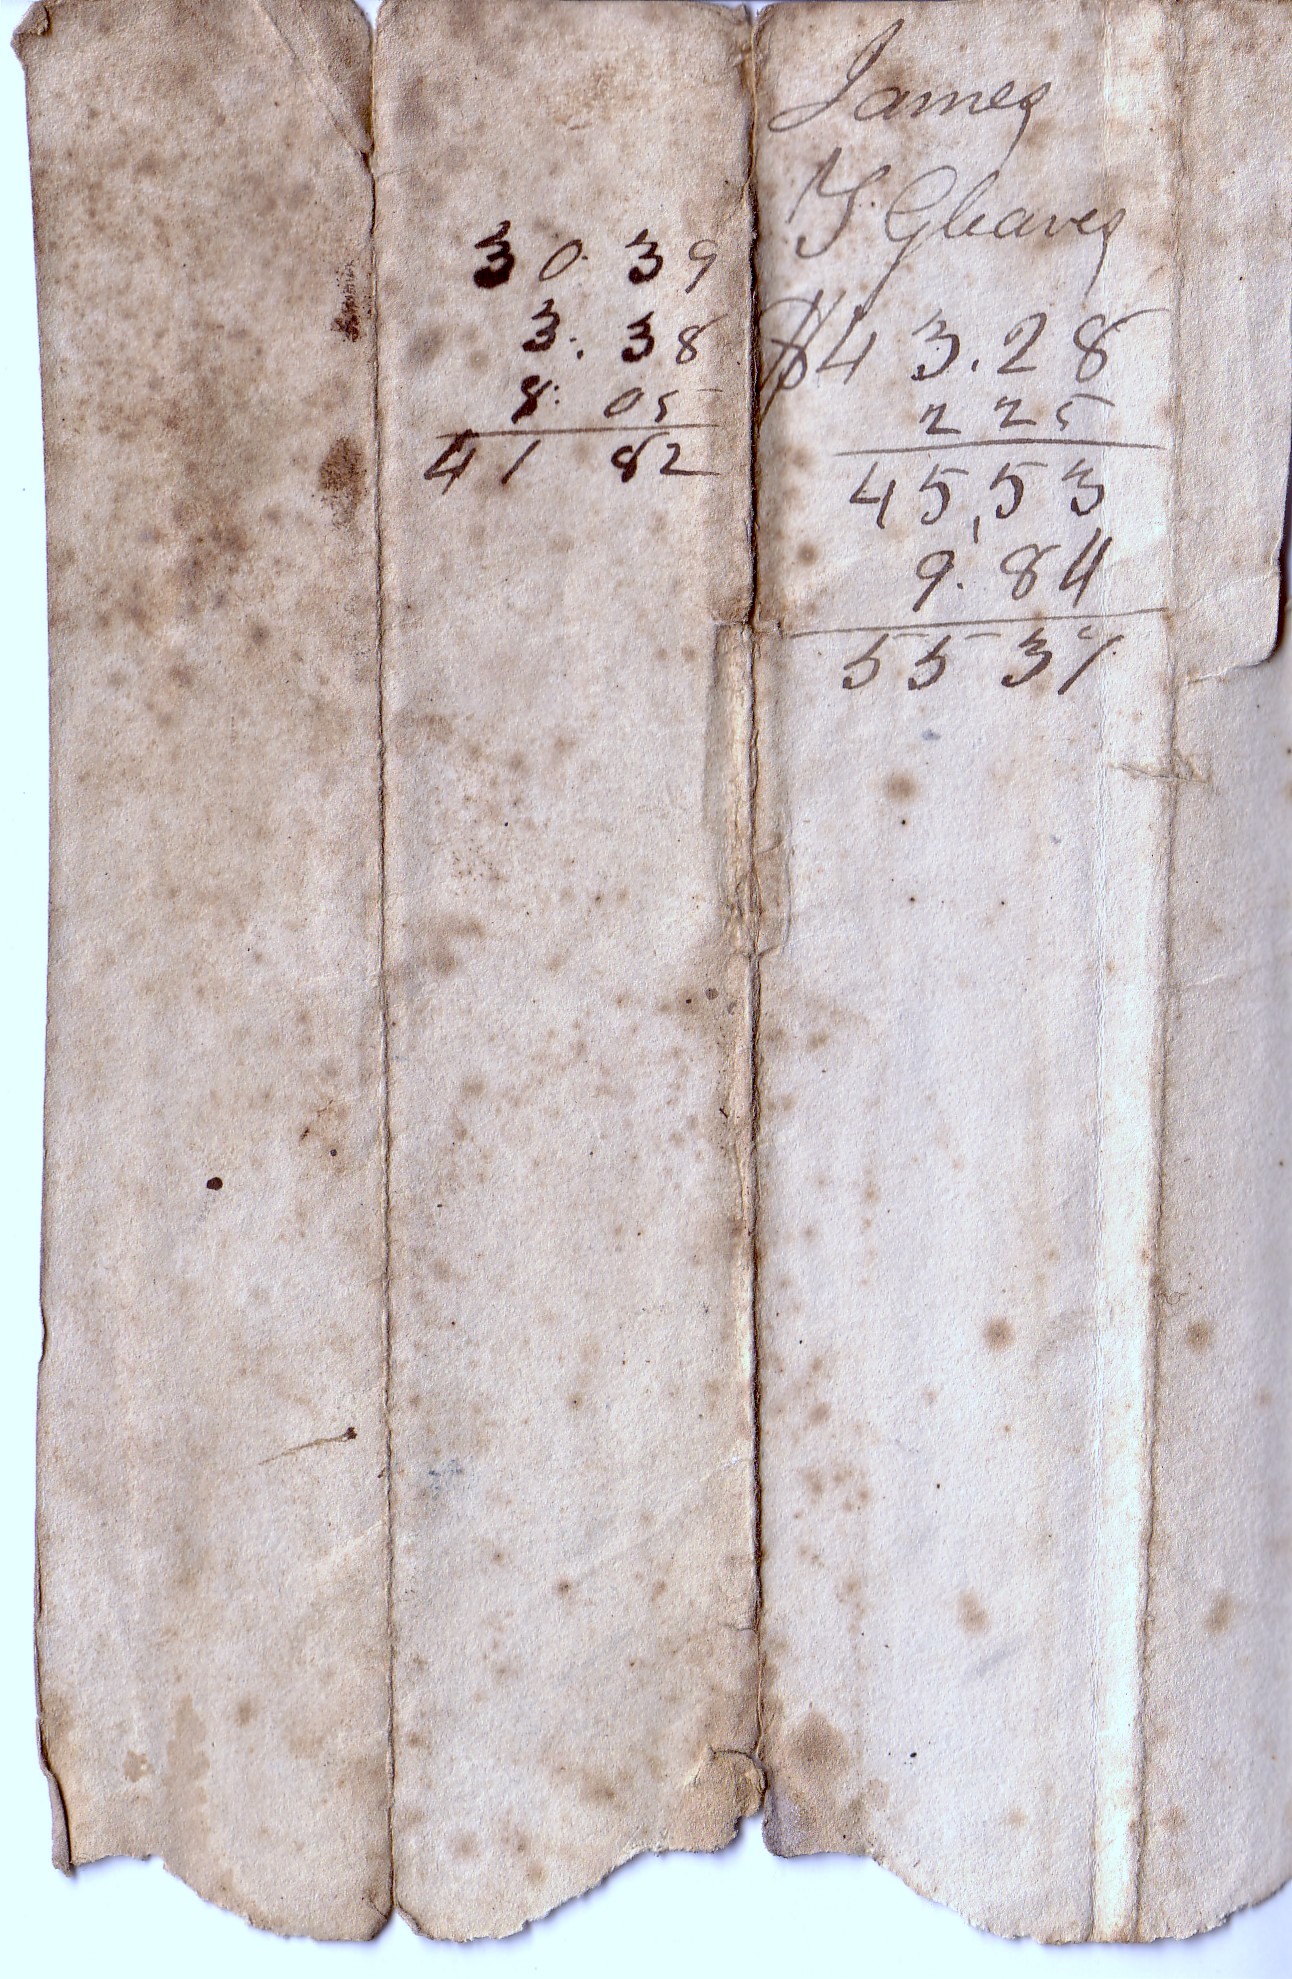 30. 39
3. 38
8. 05
41 82
James
T. Gleaves
$43.28
2 25
45,53
9. 84
55 37